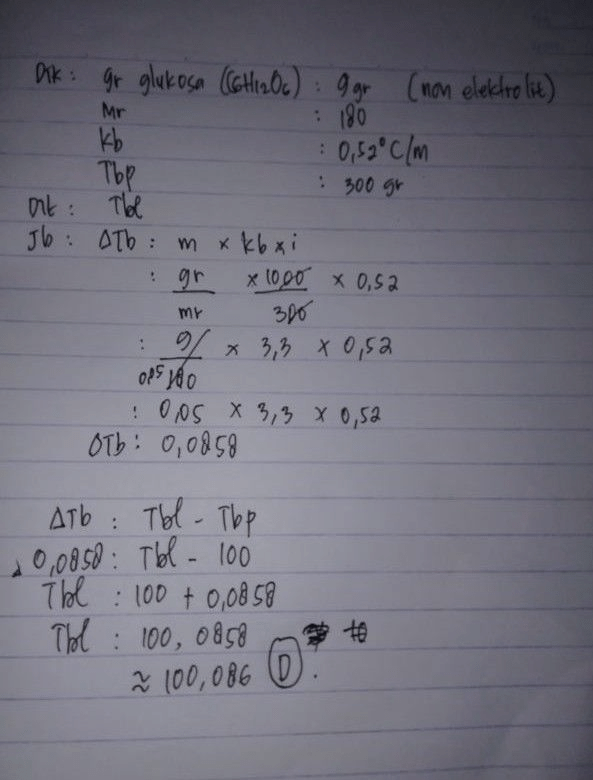 Dik : gr glukosa (C6H12O6) : 9gr (non elektrolit)
Mr : 180
kb : 0,52°C/m
Tbp : 300 gr
Dit : Tbl
Jb : ΔTb : m x kb x i
: gr x 1000 x 0,52
mr 300
: 9/ x 3,3 x 0,52
0,05 180
: 0,05 x 3,3 x 0,52
ΔTb : 0,0858
ΔTb : Tbl - Tbp
0,0858 : Tbl - 100
Tbl : 100 + 0,0858
Tbl : 100,0858
≈ 100,086 D .